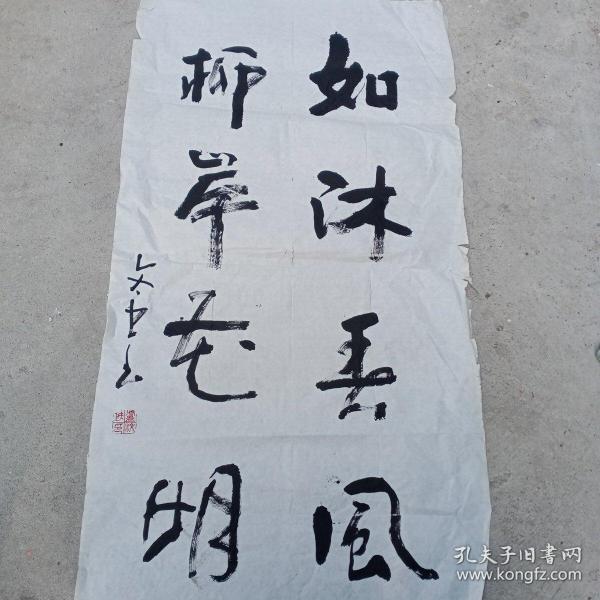 如沐春風
柳岸花明
孔夫子旧書网
www.kongfz.com